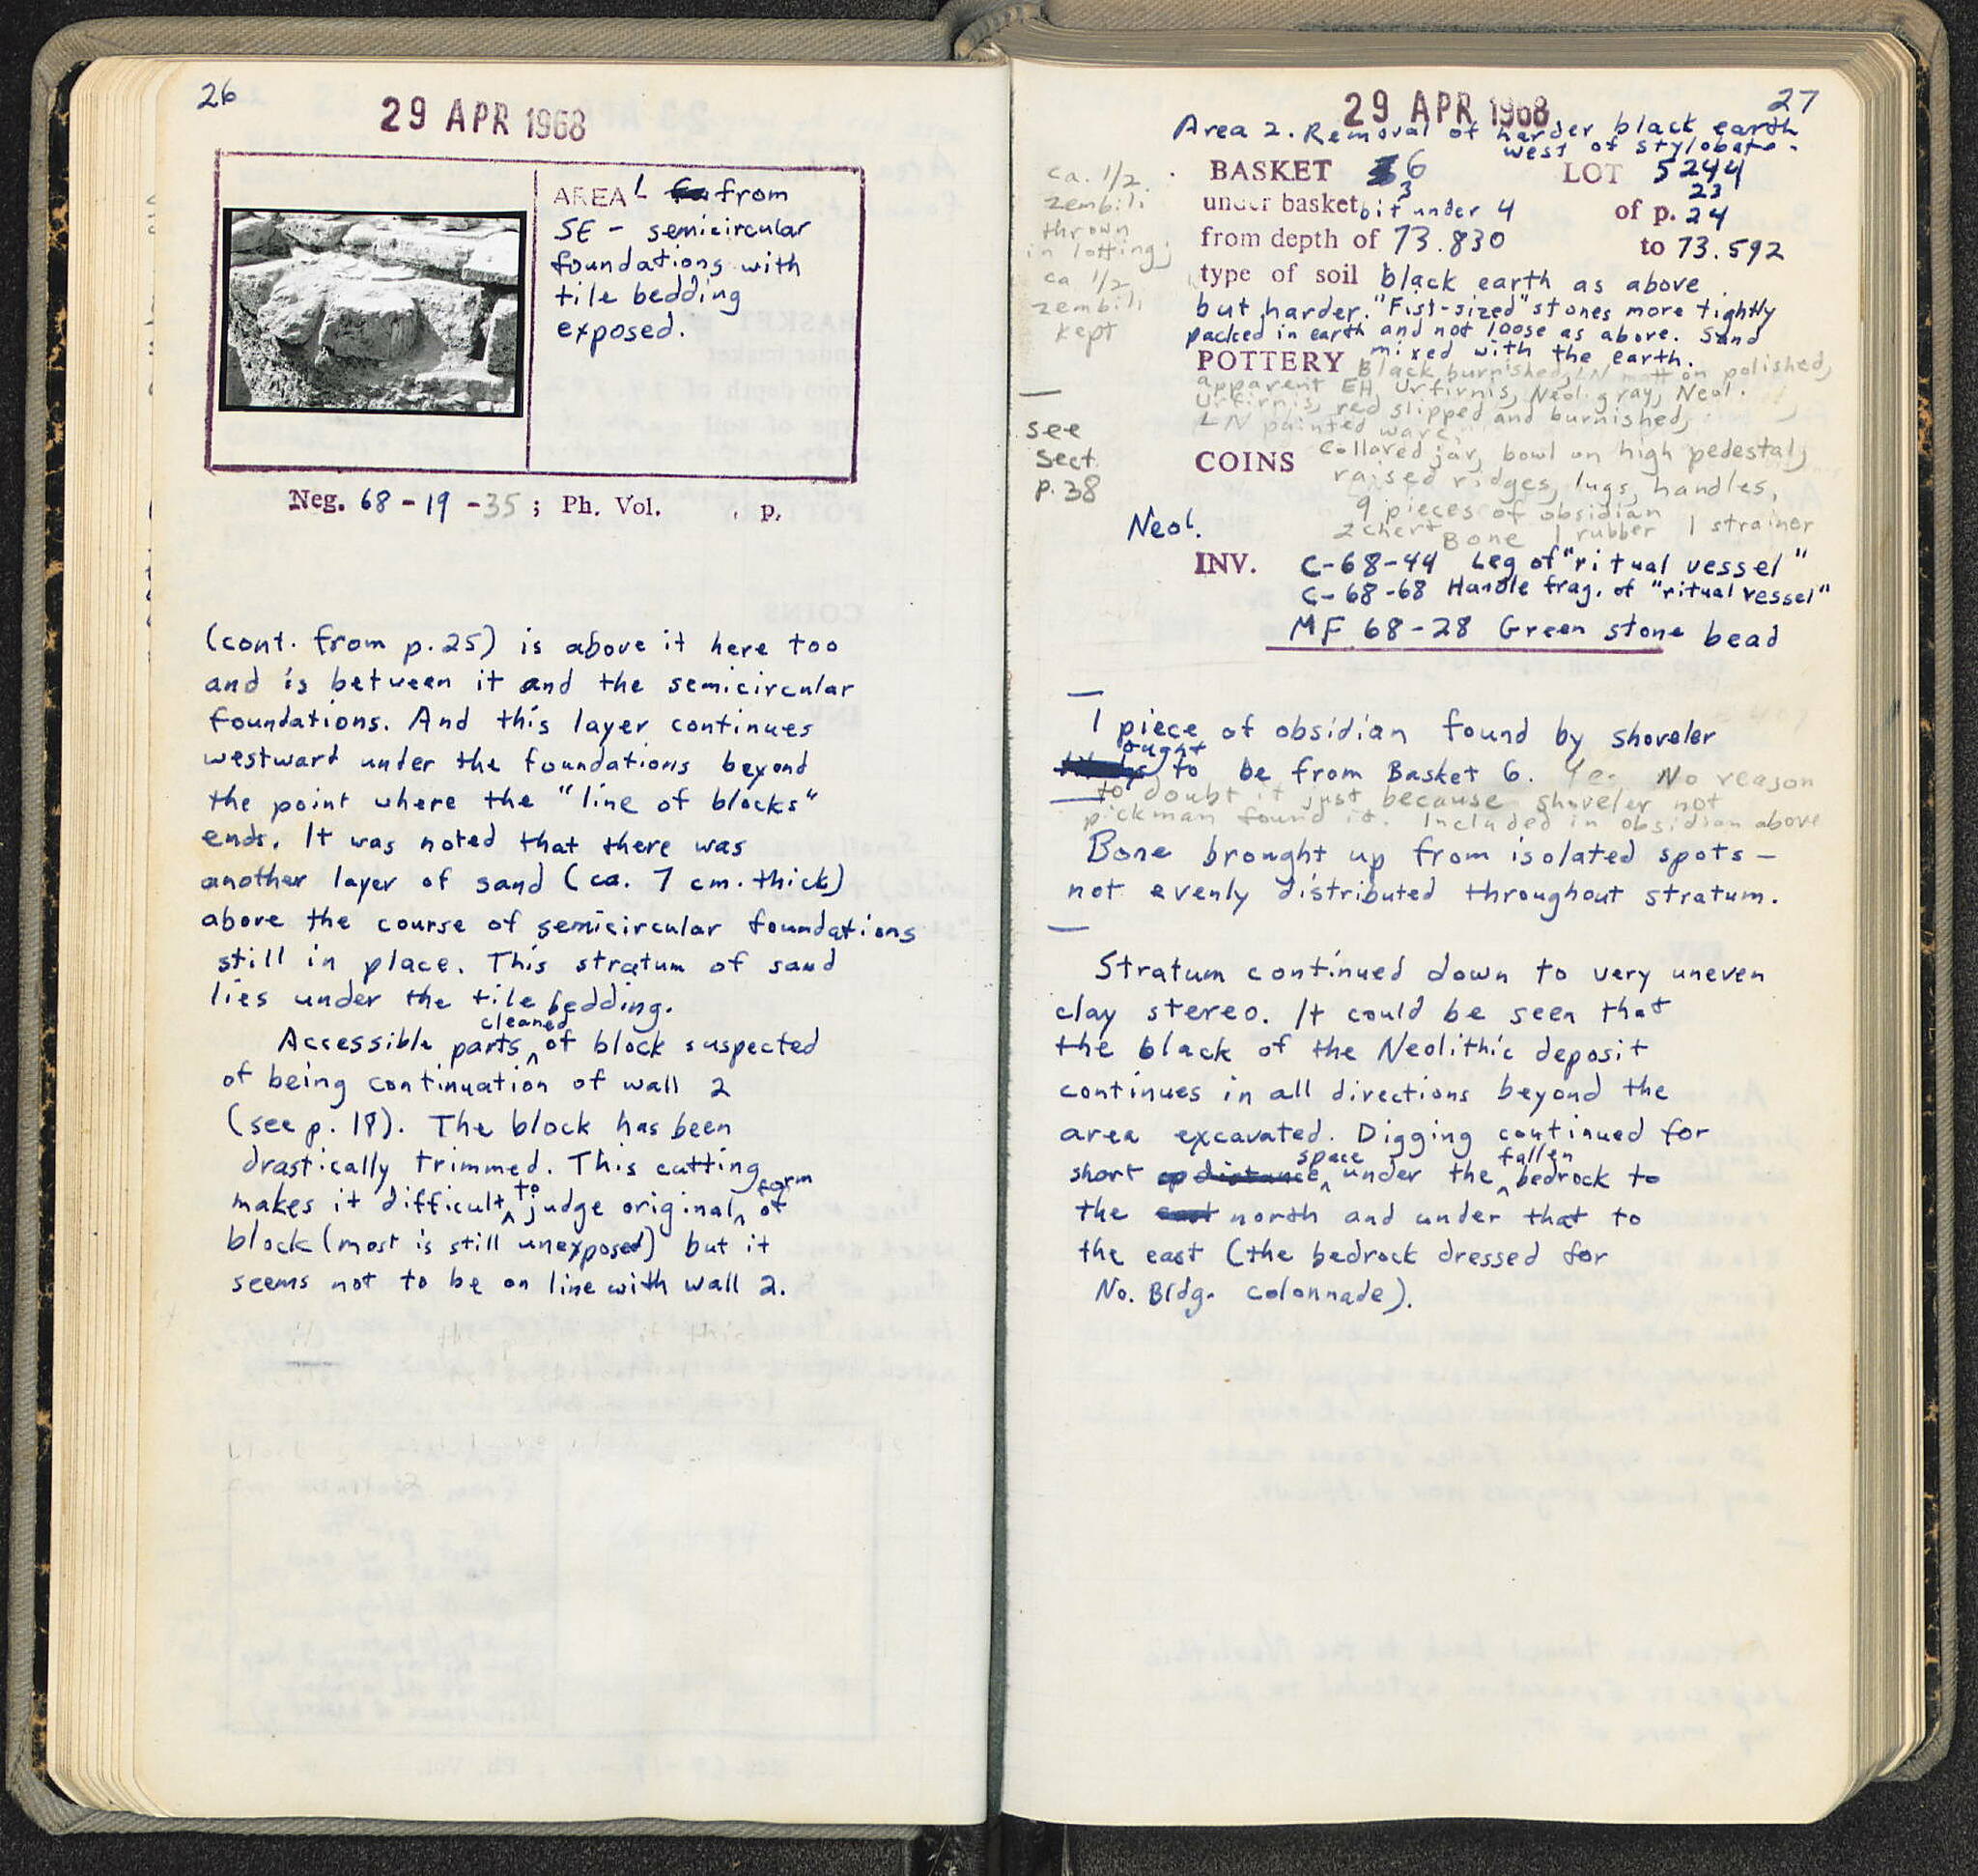 26
29 APR 1968
AREA 1 from
SE - semicircular
foundations with
tile bedding
exposed.
Neg. 68-19-35; Ph. Vol. , p.
(cont. from p.25) is above it here too
and is between it and the semicircular
foundations. And this layer continues
westward under the foundations beyond
the point where the "line of blocks"
ends. It was noted that there was
another layer of sand (ca. 7 cm. thick)
above the course of semicircular foundations
still in place. This stratum of sand
lies under the tile bedding.
Accessible parts cleaned of block suspected
of being continuation of wall 2
(see p. 18). The block has been
drastically trimmed. This cutting
makes it difficult to judge original form of
block (most is still unexposed) but it
seems not to be on line with wall 2.
27
29 APR 1968
Area 2. Removal of harder black earth
west of stylobate.
BASKET 6 LOT 5244
under basket 3 bit under 4 of p. 23 24
from depth of 73.830 to 73.592
type of soil black earth as above
but harder. "Fist-sized" stones more tightly
packed in earth and not loose as above. Sand
mixed with the earth.
ca. 1/2
zembili
thrown
in lotting;
ca 1/2
zembili
kept
POTTERY Black burnished, LN matt on polished,
apparent EH Urfirnis, Neol. gray, Neol.
Urfirnis, red slipped and burnished,
LN painted ware.
see
sect.
p. 38
COINS Collared jar, bowl on high pedestal,
raised ridges, lugs, handles,
9 pieces of obsidian
2 chert Bone 1 rubber 1 strainer
Neol.
INV. C-68-44 Leg of "ritual vessel"
C-68-68 Handle frag. of "ritual vessel"
MF 68-28 Green stone bead
1 piece of obsidian found by shoveler
ought to be from Basket 6. Yes. No reason
to doubt it just because shoveler not
pickman found it. Included in obsidian above
Bone brought up from isolated spots -
not evenly distributed throughout stratum.
Stratum continued down to very uneven
clay stereo. It could be seen that
the black of the Neolithic deposit
continues in all directions beyond the
area excavated. Digging continued for
short distance space under the fallen bedrock to
the east north and under that to
the east (the bedrock dressed for
No. Bldg. colonnade).